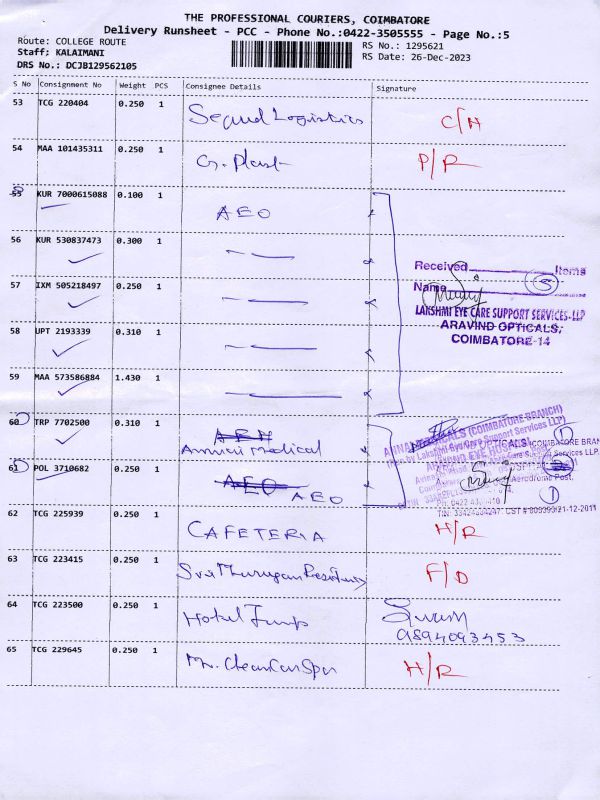 THE PROFESSIONAL COURIERS, COIMBATORE
Delivery Runsheet - PCC - Phone No.:0422-3505555 - Page No.:5
Route: COLLEGE ROUTE
RS No.: 1295621
Staff; KALAIMANI
RS Date: 26-Dec-2023
DRS No.: DCJB129562105
S No Consignment No Weight PCS Consignee Details Signature
53 TCG 220404 0.250 1 Sequel Logistics C/H
54 MAA 101435311 0.250 1 G. Plast P/R
55 KUR 7000615088 0.100 1 AEO
56 KUR 530837473 0.300 1
57 IXM 505218497 0.250 1
58 UPT 2193339 0.310 1
59 MAA 573586884 1.430 1
Received Items
Name 5
LAKSHMI EYE CARE SUPPORT SERVICES-LLP
ARAVIND OPTICALS,
COIMBATORE-14
60 TRP 7702500 0.310 1 Annai Medical
61 POL 3710682 0.250 1 AEO AEO
(COIMBATORE BRANCH)
Aerodrome Post,
62 TCG 225939 0.250 1 CAFETERIA H/R
63 TCG 223415 0.250 1 Sri Murugan Residency F/D
64 TCG 223500 0.250 1 Hotel
9894093453
65 TCG 229645 0.250 1 Mr. Clean Car Spa H/R